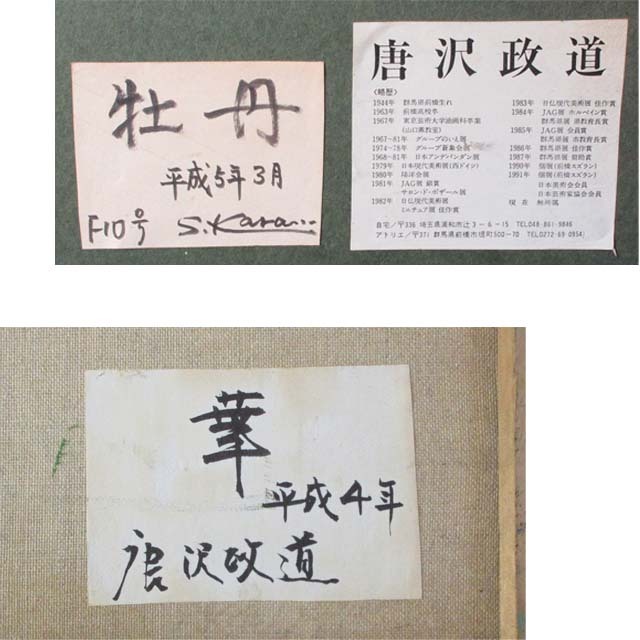 牡丹
平成5年3月
F10号 S.Kara...
唐沢政道
〈略歴〉
1944年 群馬県前橋生れ
1963年 前橋高校卒
1967年 東京芸術大学油画科卒業
(山口薫教室)
1967~81年 グループのいえ展
1974~78年 グループ新象会展
1968~81年 日本アンデパンダン展
1979年 日本現代美術展(西ドイツ)
1980年 陽洋会展
1981年 JAG展 銀賞
サロン・ド・ボザール展
1982年 日仏現代美術展
ミニチュア展 佳作賞
1983年 日仏現代美術展 佳作賞
1984年 JAG展 ホルベイン賞
群馬県展 県教育長賞
1985年 JAG展 会員賞
群馬県展 市教育長賞
1986年 群馬県展 佳作賞
1987年 群馬県展 奨励賞
1990年 個展(前橋スズラン)
1991年 個展(前橋スズラン)
日本美術会会員
日本芸術家協会会員
現在 無所属
自宅/〒336 埼玉県浦和市辻3-6-15 TEL048-861-9846
アトリエ/〒371 群馬県前橋市堤町500-70 TEL0272-69-0954
華
平成4年
唐沢政道